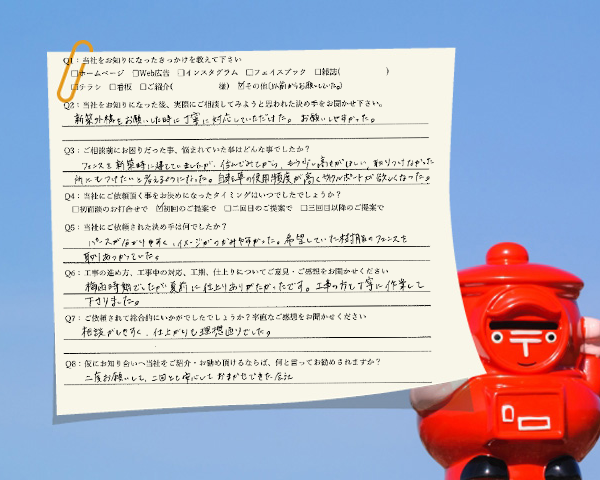 Q1：当社をお知りになったきっかけを教えて下さい
□ホームページ □Web広告 □インスタグラム □フェイスブック □雑誌( )
□チラシ □看板 □ご紹介( 様) ☑その他(以前からお願いしていた。)
Q2：当社をお知りになった後、実際にご相談してみようと思われた決め手をお聞かせ下さい。
新築外構をお願いした時に丁寧に対応していただけた。お願いしやすかった。
Q3：ご相談前にお困りだった事、悩まれていた事はどんな事でしたか？
フェンスを新築時に建てていましたが、住んでみてから、もう少し高さがほしい、取りつけなかった
所にもつけたいと考えるようになった。自転車の使用頻度が高くサイクルポートが欲しくなった。
Q4：当社にご依頼頂く事をお決めになったタイミングはいつでしたでしょうか？
□初面談のお打合せで ☑初回のご提案で □二回目のご提案で □三回目以降のご提案で
Q5：当社にご依頼された決め手は何でしたか？
パースが分かりやすく、イメージがつかみやすかった。希望していた樹脂のフェンスを
取りあつかっていた。
Q6：工事の進め方、工事中の対応、工期、仕上りについてご意見・ご感想をお聞かせください
梅雨時期でしたが夏前に仕上りありがたかったです。工事の方も丁寧に作業して
下さりました。
Q7：ご依頼されて総合的にいかがでしたでしょうか？率直なご感想をお聞かせください
相談がしやすく、仕上がりも理想通りでした。
Q8：仮にお知り合いへ当社をご紹介・お勧め頂けるならば、何と言ってお勧めされますか？
二度お願いして、二回とも安心しておまかせできた会社